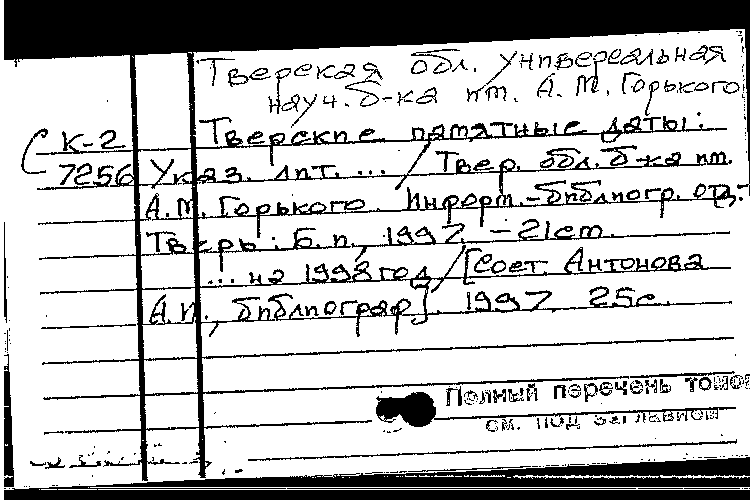 Тверская обл. универсальная
науч. б-ка им. А. М. Горького
К-2 Тверские памятные даты:
7256 Указ. лит. ... / Твер. обл. б-ка им.
А.М. Горького. Информ.-библиогр. отд.-
Тверь: Б. и., 1997 - 21 cm.
... на 1998 год / [Сост. Антонова
А.И., библиограф]. 1997. 25с.
Полный перечень томов
см. под заглавием